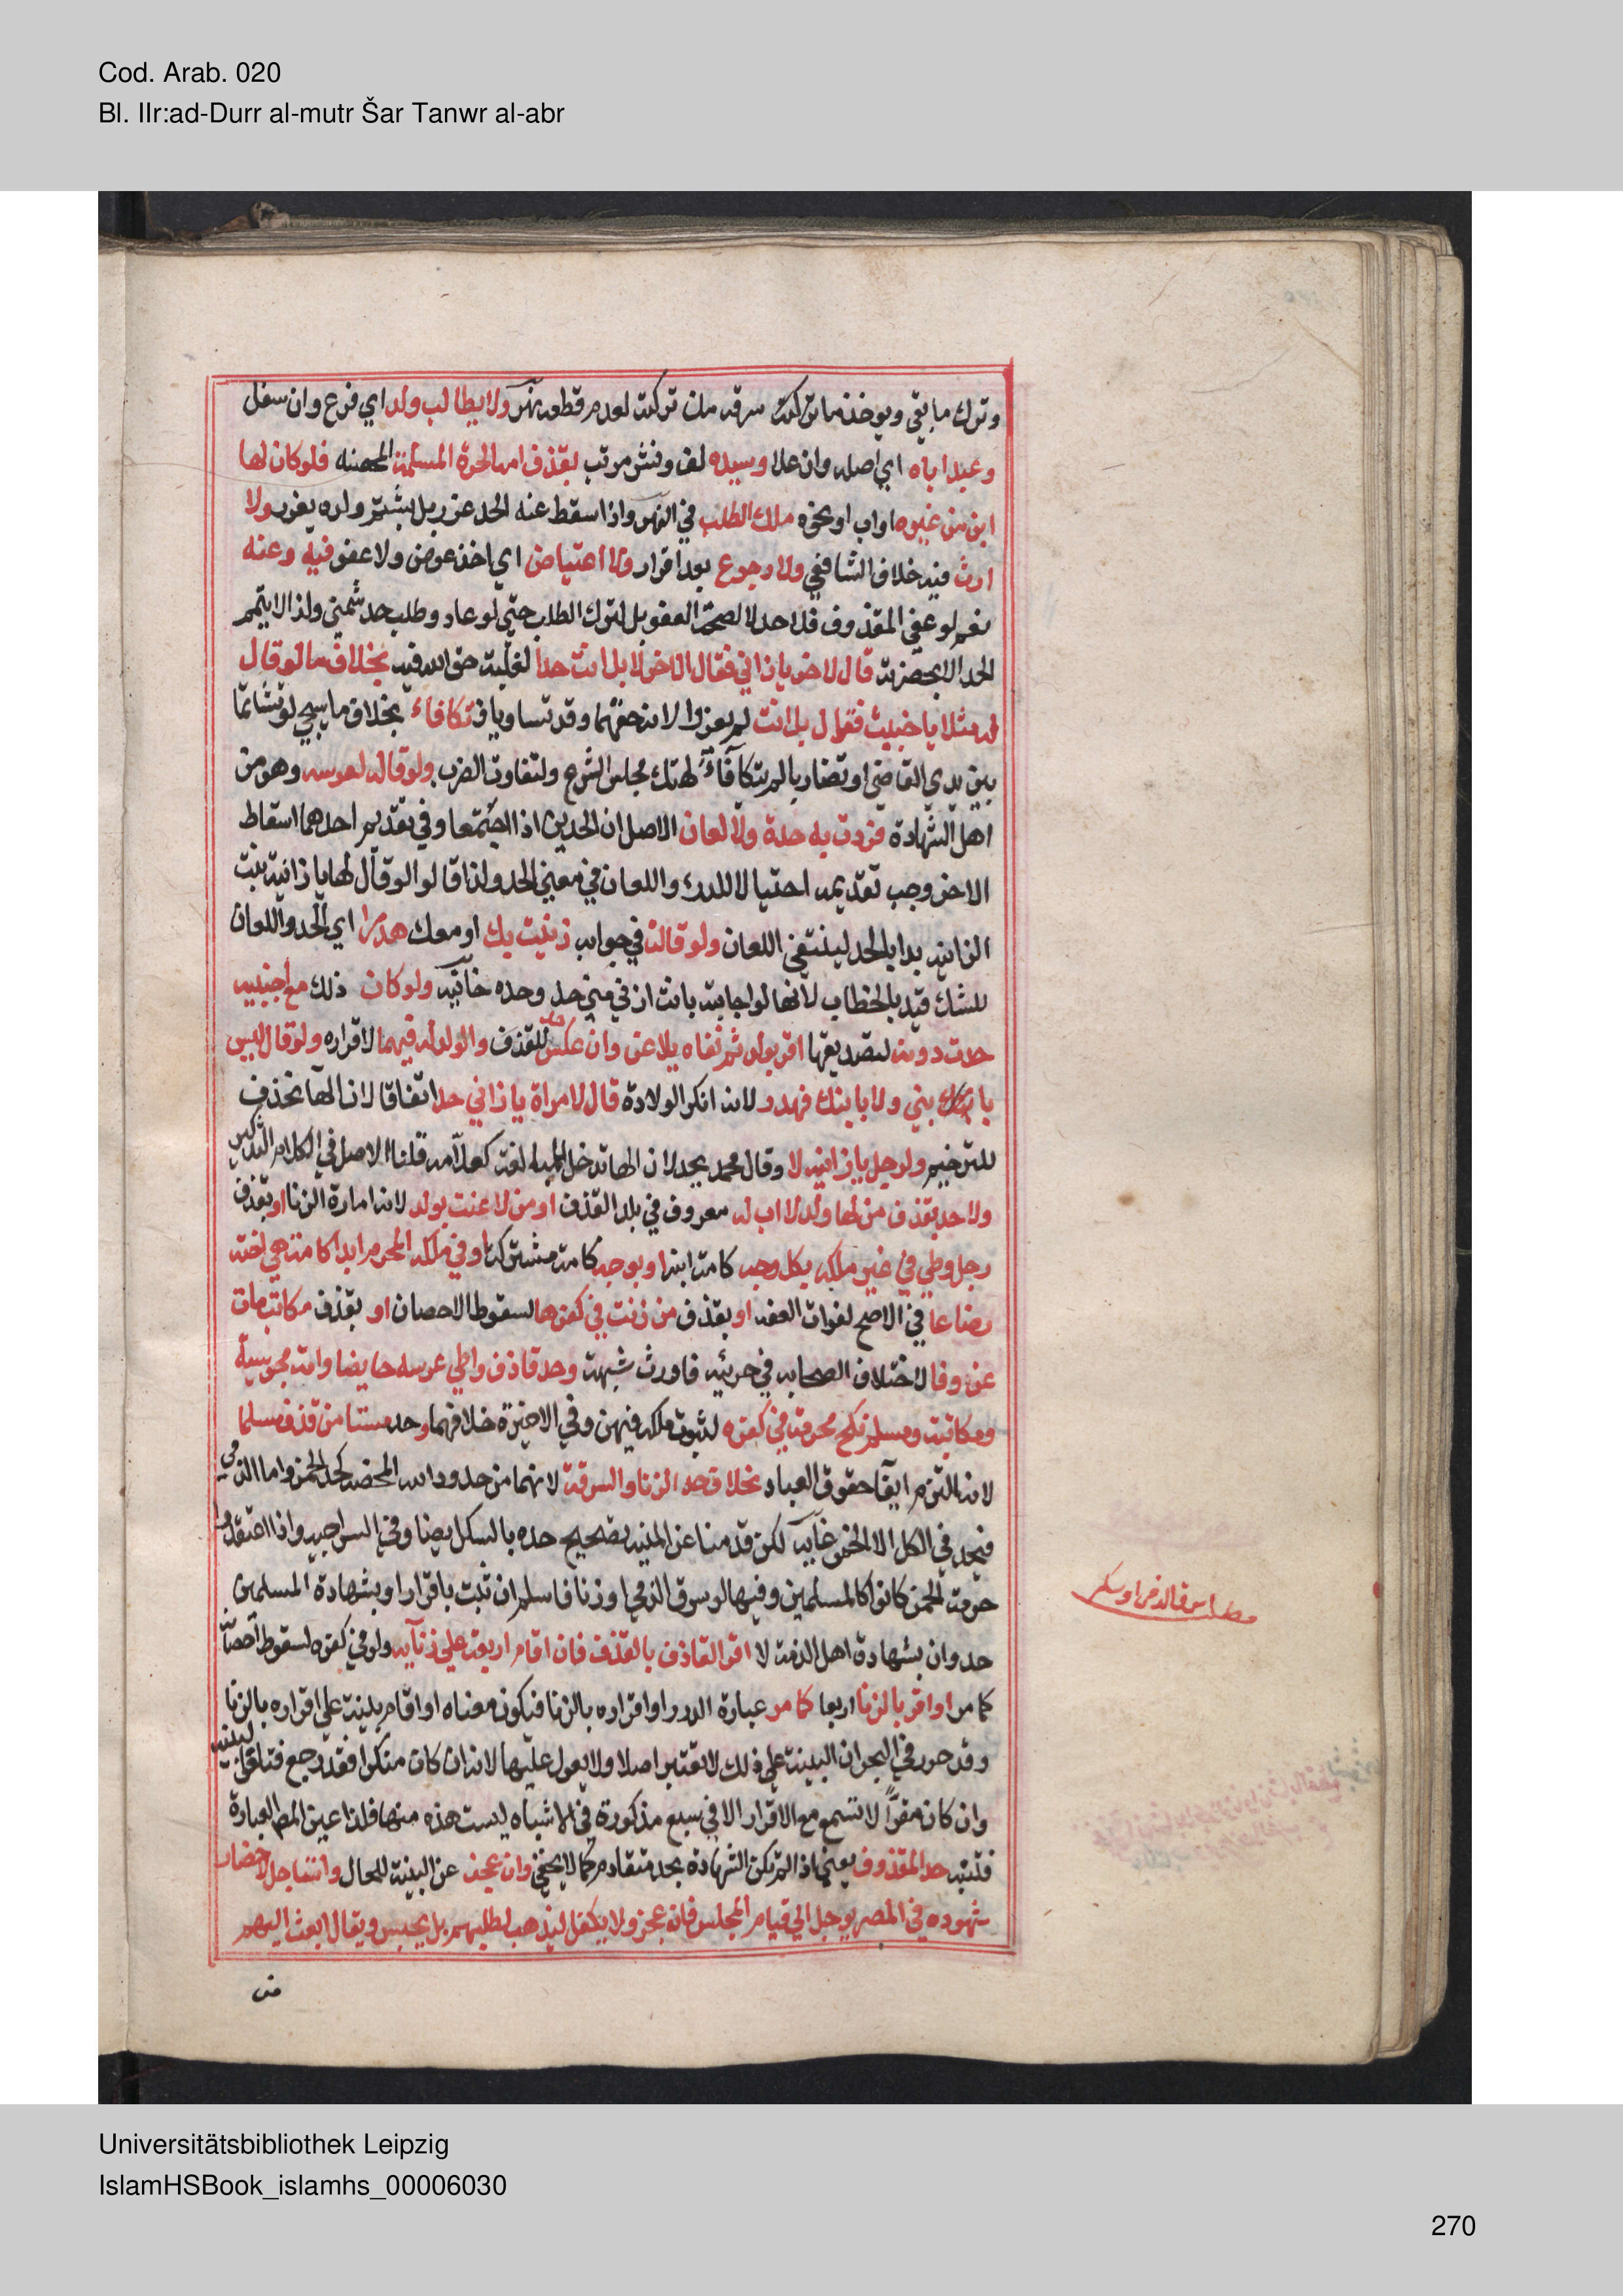 Cod. Arab. 020
Bl. IIr:ad-Durr al-mutr Šar Tanwr al-abr
وترك ما بقي ويوخذ من تركته لعدم قطعه نهر ولا يطالب ولد اي فرع وان سفل
وعبد اباه اي اصله وان علا وسيده لف ونشر مرتب بقذف امه الحرة المسلمة المحصنه فلو كان لها
ابن من غيره او اب او نحوه ملك الطلب في النهر واذا سقط عنه الحد عزر بل بشتم ولده يعزر ولا
ارث فيه خلاف الشافعي ولا رجوع بعد اقرار ولا اعتياض اي اخذ عوض ولا عفو فيه وعنه
نعم لو عفي المقذوف فلا حد لا لصحة العفو بل لترك الطلب حتي لو عاد وطلب حد شمني ولذا لا يتم
الحد الا بحضرته قال لاخر يا زاني فقال الاخر لا بل انت حدا لغلبة حق الله فيه بخلاف ما لو قال
له مثلا يا خبيث فقال بل انت لم يعزرا لانه حقهما وقد تساويا فتكافاء بخلاف ما سيجي لو تشاتما
بين يدي القاضي او تضاربا لم يتكافاء لهتك مجلس الشرع ولتفاوت الضرب ولو قاله لعرسه وهو من
اهل الشهادة فردت به حدة ولا لعان الاصل ان الحدين اذا اجتمعا وفي تقديم احدهما اسقاط
الاخر وجب تقديمه احتيالا للدرء واللعان في معني الحد ولذا قالوا لو قال لها يا زانية بنت
الزانية بدا بالحد لينتفي اللعان ولو قالت في جوابه زنيت بك او معك هدرا اي الحد واللعان
للشك قيد بالخطاب لانها لو اجابته بانت ازني مني حد وحده خانيه ولو كان ذلك مع اجنبيه
حدت دونه لتصديقها اقر بولد ثم نفاه يلاعن وان عكس حد للقذف والولد له فيهما لاقراره ولو قال ليس
بابني ولا بابنك فهدر لانه انكر الولادة قال لامراة يا زاني حد اتفاقا لان الها تحذف
للترخيم ولرجل يا زانيه لا وقال محمد يحد لان الها تدخل للمبالغه كعلامه قلنا الاصل في الكلام التذكير
ولا حد بقذف من لها ولد لا اب له معروف في بلد القذف او من لاعنت بولد لانه امارة الزنا او بقذف
رجل وطي في غير ملكه بكل وجه كامة ابنه او بوجه كامة مشتركة او في ملكه المحرم ابدا كامة هي اخته
رضاعا في الاصح لفوات العفه او بقذف من زنت في كفرها لسقوط الاحصان او بقذف مكاتب مات
عن وفا لاختلاف الصحابه في حريته فاورث شبهة وحد قاذف واطي عرسه حايضا وامة مجوسية
ومكاتبة ومسلم نكح محرمه في كفره لثبوت ملكه فيهن وفي الاخيرة خلافهما وحد مستامن قذف مسلما
لانه التزم ايفا حقوق العباد بخلاف حد الزنا والسرقة لانهما من حدود الله المحضه كحد الخمر واما الذمي
فيحد في الكل الا الخمر غايه لكن قدمنا عن المنيه تصحيح حده بالسكر ايضا وفي السراجيه واذا اعتقدوا
حرمة الخمر كانوا كالمسلمين وفيها لو سرق الذمي او زنا فاسلم ان ثبت باقراره او بشهادة المسلمين
حد وان بشهادة اهل الذمة لا اقر القاذف بالقذف فان اقام اربعة علي زنايه ولو في كفره لسقوط احصانه
كما مر او اقر بالزنا اربعا كما مر عبارة الدرر او اقراره بالزنا فيكون معناه او اقام بينة علي اقراره بالزنا
وقد حرر في البحر ان البينة علي ذلك لا تعتبر اصلا ولا يعول عليها لانه ان كان منكرا فقد رجع فتلغوا البينه
وان كان مقرا لا تسمع مع الاقرار الا في سبع مذكورة في الاشباه ليست هذه منها فلذا غير المص العبارة
فتنبه حد المقذوف يعني اذا لم تكن الشهادة بحد متقادم كما لا يخفي وان عجز عن البينة للحال واستاجل لاحضار
شهوده في المصر يوجل الي قيام المجلس فان عجز ولا يكفل ليذهب لطلبهم بل يحبس ويقال ابعث اليهم
من
Universitätsbibliothek Leipzig
IslamHSBook_islamhs_00006030
270